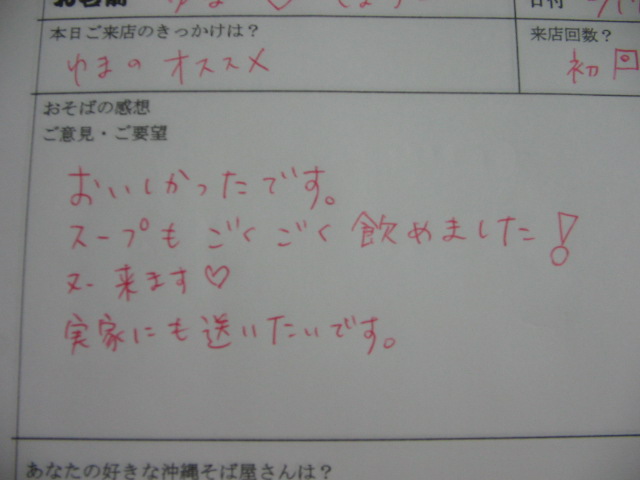 本日ご来店のきっかけは？
来店回数？
ゆまの オススメ
初回
おそばの感想
ご意見・ご要望
おいしかったです。
スープも ごくごく 飲めました！
又 来ます♡
実家にも送りたいです。
あなたの好きな沖縄そば屋さんは？